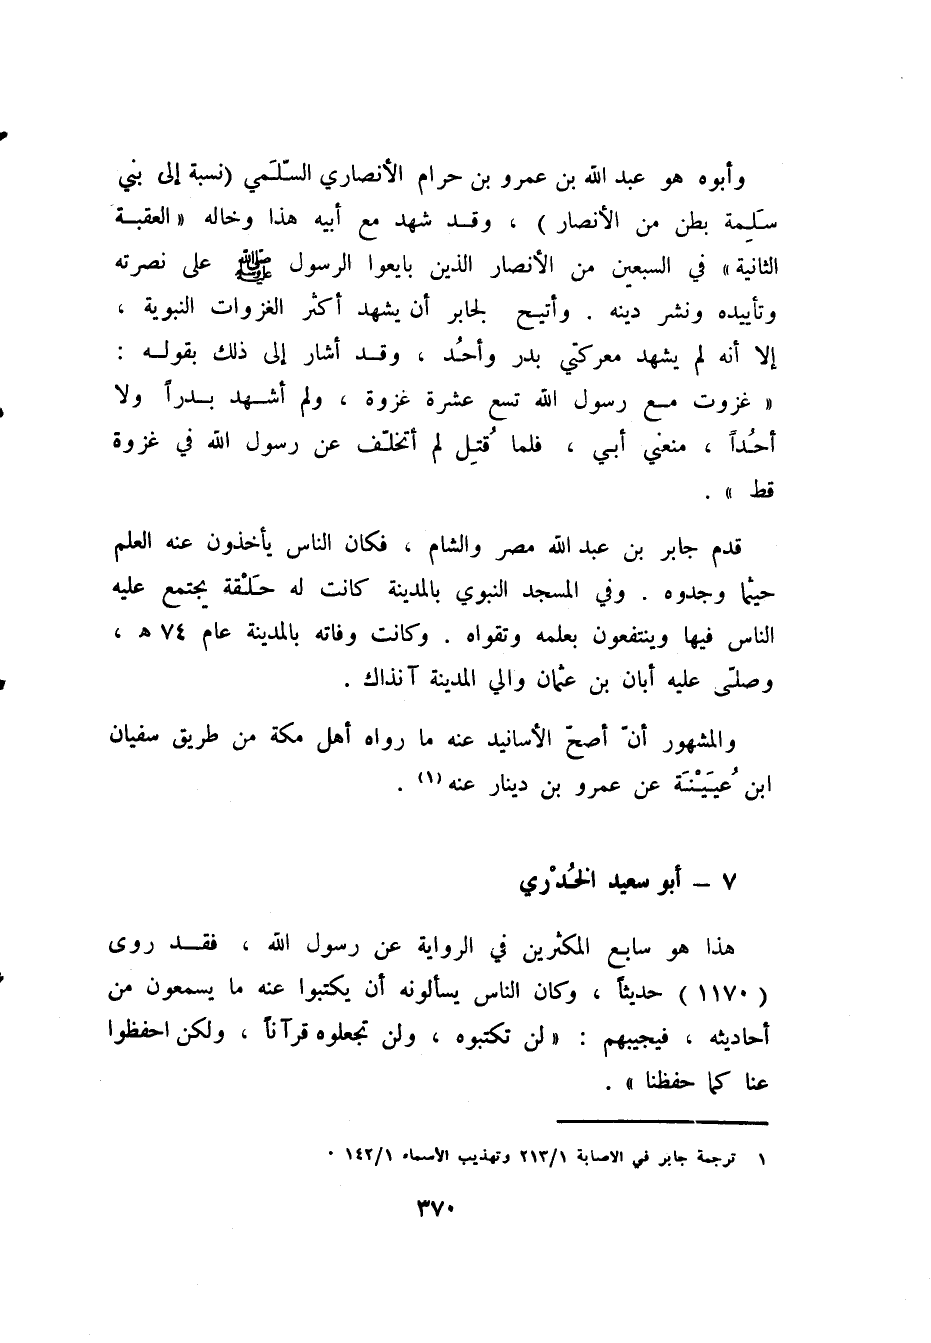 وأبوه هو عبد الله بن عمرو بن حرام الأنصاري السَّلَمي (نسبة إلى بني
سَلِمة بطن من الأنصار ) ، وقد شهد مع أبيه هذا وخاله « العقبة
الثانية » في السبعين من الأنصار الذين بايعوا الرسول ﷺ على نصرته
وتأييده ونشر دينه . وأتيح لجابر أن يشهد أكثر الغزوات النبوية ،
إلا أنه لم يشهد معركتي بدر وأُحُد ، وقد أشار إلى ذلك بقوله :
« غزوت مع رسول الله تسع عشرة غزوة ، ولم أشهد بدراً ولا
أُحُداً ، منعني أبي ، فلما قُتِل لم أتخلّف عن رسول الله في غزوة
قط » .
قدم جابر بن عبد الله مصر والشام ، فكان الناس يأخذون عنه العلم
حيثما وجدوه . وفي المسجد النبوي بالمدينة كانت له حَلْقة يجتمع عليه
الناس فيها وينتفعون بعلمه وتقواه . وكانت وفاته بالمدينة عام ٧٤ ه ،
وصلّى عليه أبان بن عثمان والي المدينة آنذاك .
والمشهور أنّ أصحّ الأسانيد عنه ما رواه أهل مكة من طريق سفيان
ابن عُيَيْنَة عن عمرو بن دينار عنه (١) .
٧ – أبو سعيد الخُدْري
هذا هو سابع المكثرين في الرواية عن رسول الله ، فقد روى
( ١١٧٠ ) حديثاً ، وكان الناس يسألونه أن يكتبوا عنه ما يسمعون من
أحاديثه ، فيجيبهم : « لن تكتبوه ، ولن تجعلوه قرآناً ، ولكن احفظوا
عنا كما حفظنا » .
١ ترجمة جابر في الاصابة ٢١٣/١ وتهذيب الأسماء ١٤٢/١ .
٣٧٠